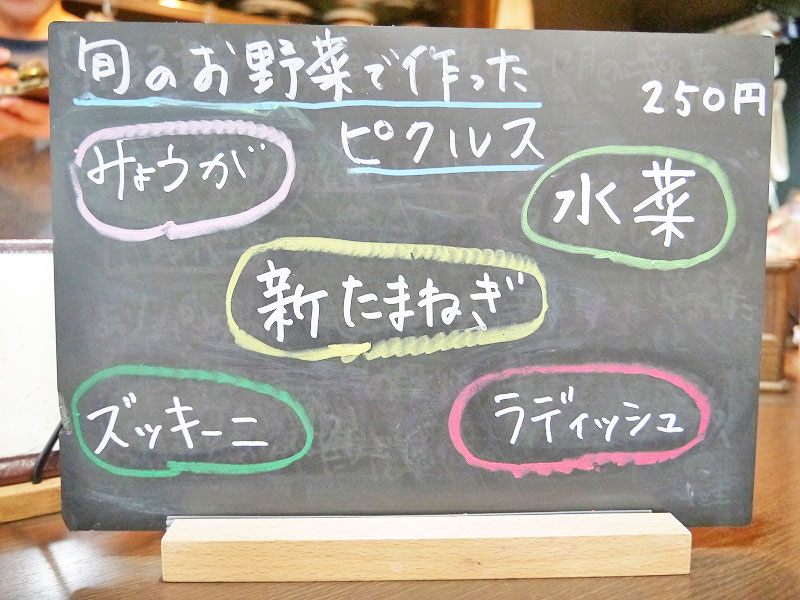 旬のお野菜で作った
250円
ピクルス
みょうが
水菜
新たまねぎ
ズッキーニ
ラディッシュ